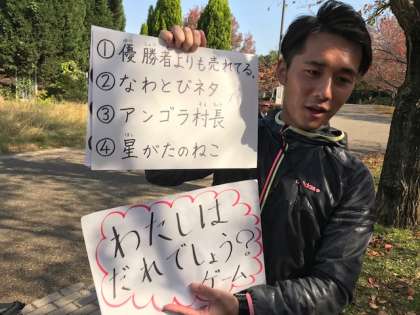 ① 優勝者よりも売れてる。
② なわとびネタ
③ アンゴラ村長
④ 星がたのねこ
わたしは
だれでしょう?
ゲーム